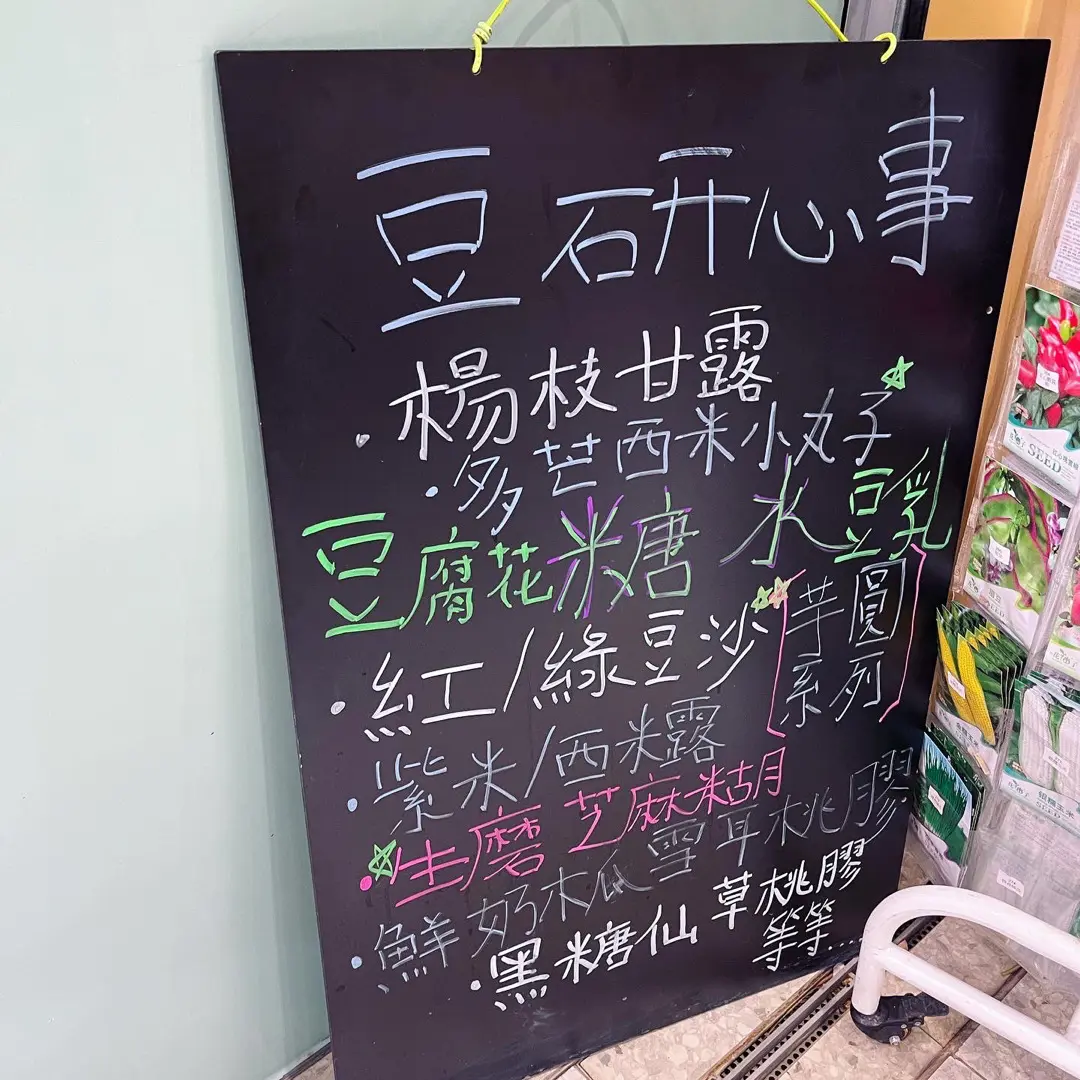 豆研開心事
• 楊枝甘露
• 多芒西米小丸子
豆腐花糖水豆乳
• 紅/綠豆沙
芋圓
系列
• 紫米/西米露
• 生磨芝麻糊
• 鮮奶木瓜雪耳桃膠
• 黑糖仙草桃膠
等等......
SEED